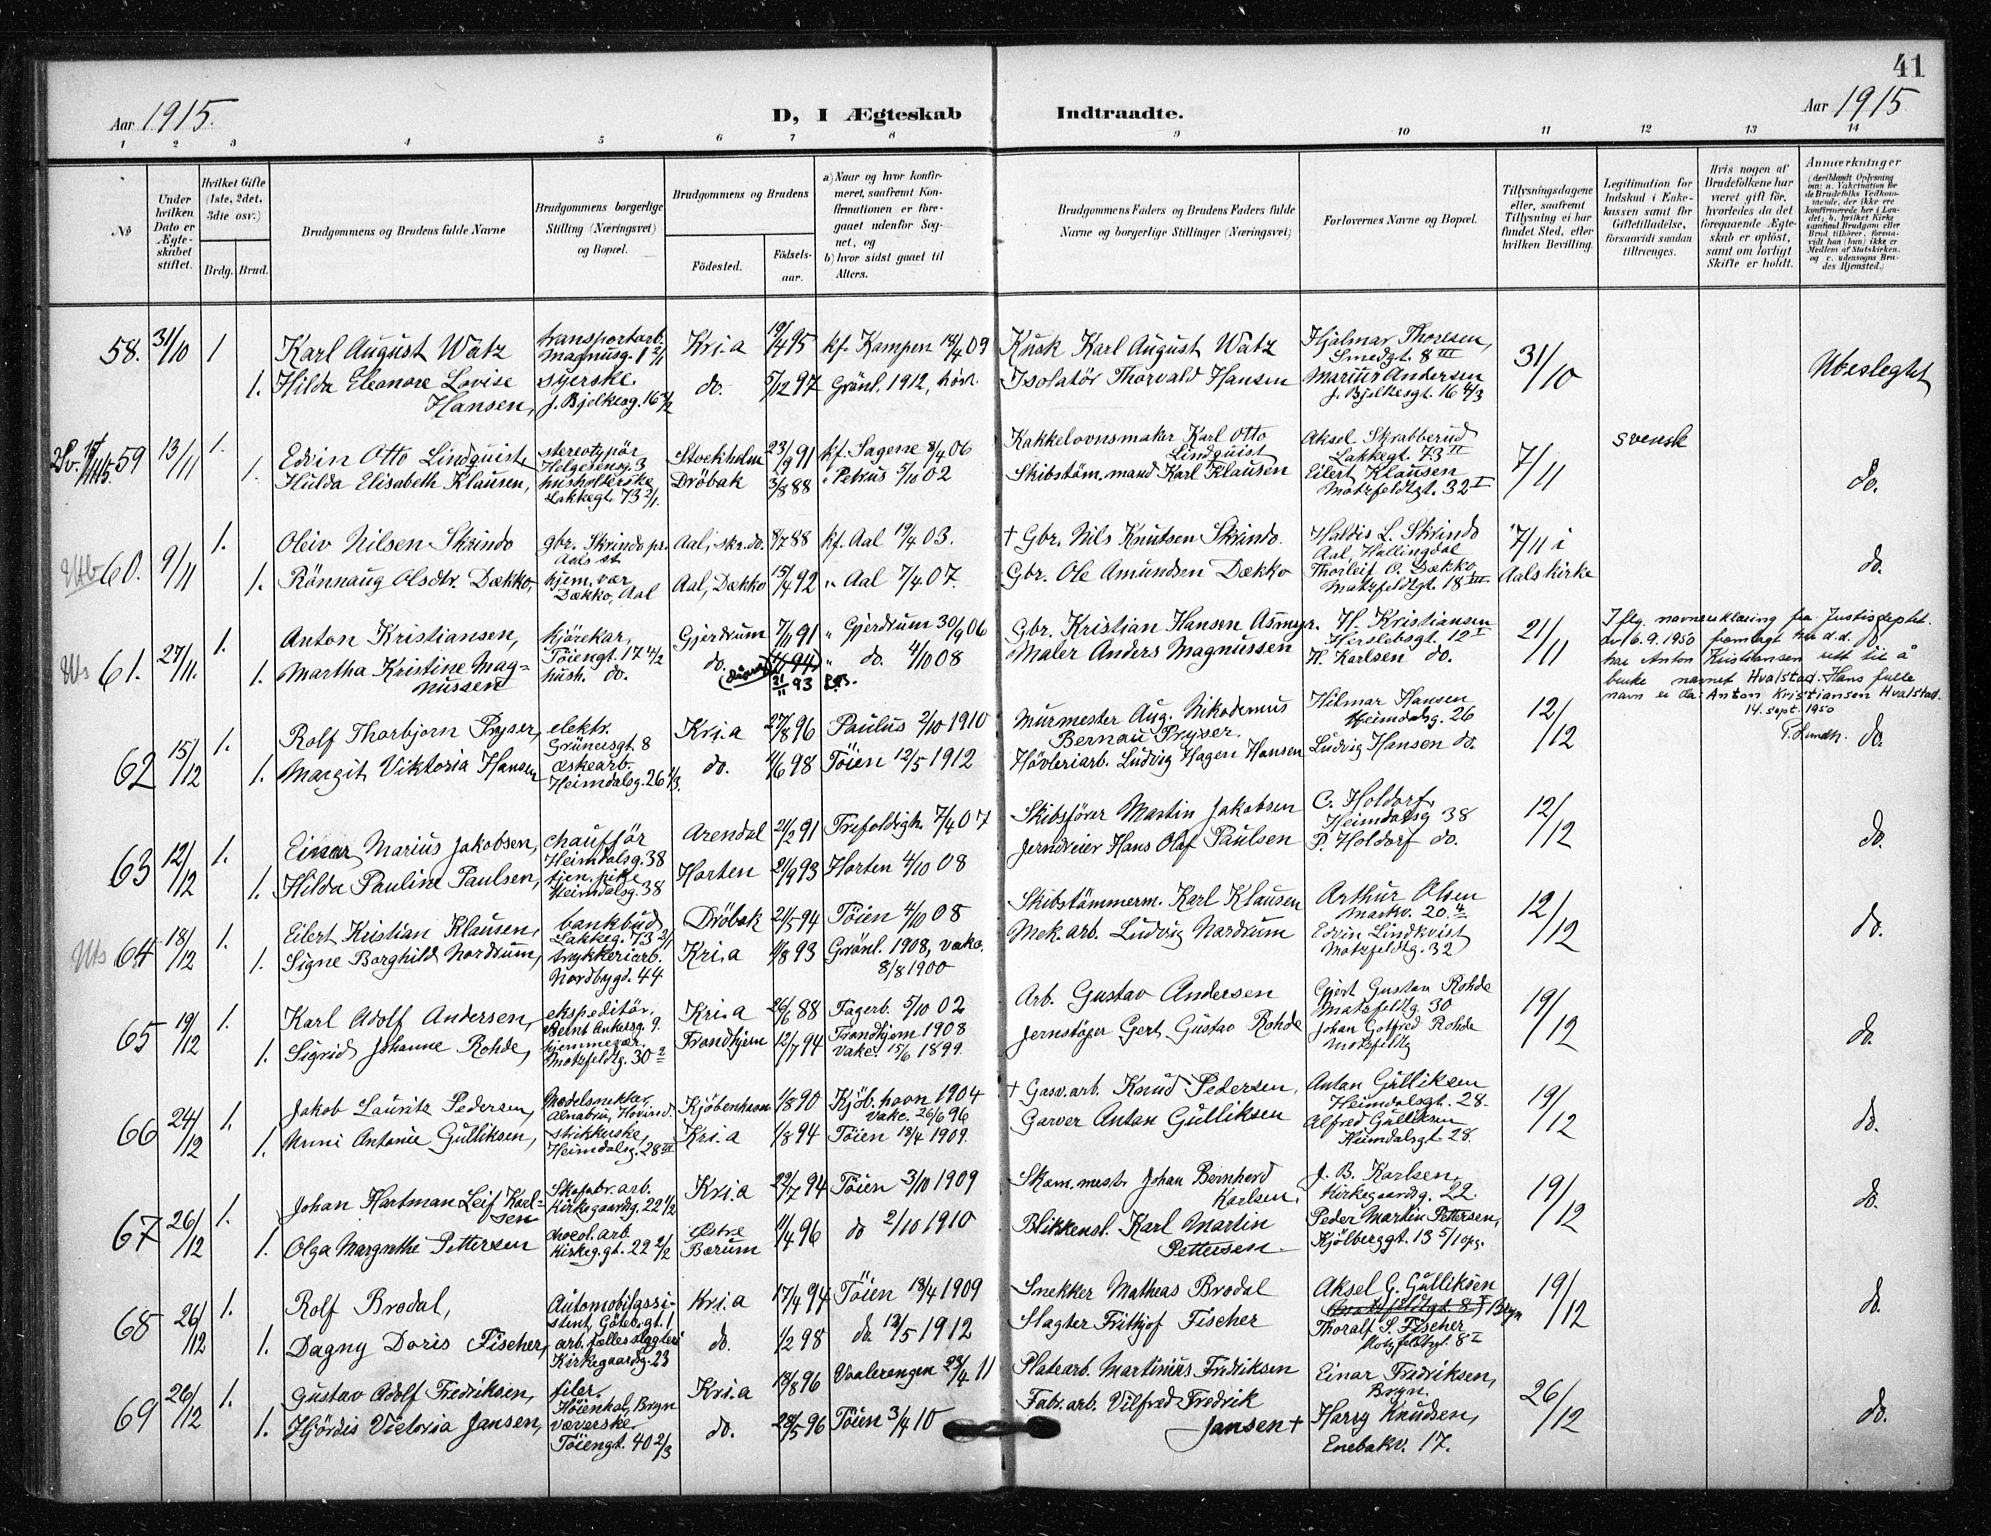 41
Aar 1915.
D, I Ægteskab
Indtraadte.
Aar 1915
1 2 3 4 5 6 7 8 9 10 11 12 13 14
No
Under hvilken Dato er Ægteskabet stiftet.
Hvilket Gifte (1ste, 2det, 3die osv.)
Brdg. Brud.
Brudgommens og Brudens fulde Navne
Brudgommens borgerlige Stilling (Næringsvei) og Bopæl.
Brudgommens og Brudens
Fødested.
Fødselsaar.
a) Naar og hvor konfirmeret, saafremt Konfirmationen er foregaaet udenfor Sognet, og
b) hvor sidst gaaet til Alters.
Brudgommens Faders og Brudens Faders fulde Navne og borgerlige Stillinger (Næringsvei)
Forlovernes Navne og Bopæl.
Tillysningsdagene eller, saafremt Tillysning ei har fundet Sted, efter hvilken Bevilling.
Legitimation for Indskud i Enkekassen samt for Giftetilladelse, forsaavidt saadan tiltrænges.
Hvis nogen af Brudefolkene har været gift før, hvorledes da det foregaaende Ægteskab er opløst, samt om lovligt Skifte er holdt.
Anmærkninger
(deriblandt Oplysning om: a. Vakcination for de Brudefolks Vedkommende, der ikke ere konfirmerede her i Landet; b. hvilket Kirkesamfund Brudgom eller Brud tilhører, forsaavidt han (hun) ikke er Medlem af Statskirken, og c. udensogns Brudes Hjemsted.)
58. 31/10 1 Karl August Watz transportarb. Magnusg. 1 2/1 Kri.a 19/4 95 kf. Kampen 18/4 09 Kusk Karl August Watz Hjalmar Thoresen, Smedgt. 8 III 31/10 Ubeslegtet
1. Hilda Eleonore Lovise Hansen, syerske. J. Bjelkesg. 16 4/2 do. 5/12 97 Grönl. 1912, Isolatör Thorvald Hansen Marius Andersen J. Bjelkesgt. 16 4/3
59 13/11 1. Edvin Otto Lindquist stereotypör Helgesensg. 3 Stockholm 23/9 91 kf. Sagene 8/4 06 Kakkelovnsmaker Karl Otto Lindquist Aksel Skrabberud Lakkegt. 73 II 7/11 svensk do.
1. Hulda Elisabeth Klausen, husholderske Lakkegt. 73 2/1. Dröbak 3/8 88 " Petrus 5/10 02 Skibstöm.mand Karl Klausen Eilert Klausen Motzfeldtgt. 32 I
60. 9/11 1. Oleiv Nilsen Skrindo gbr. Skrindo pr. Aals st Aal, skr.do. 8/7 88 kf. Aal 19/4 03. † Gbr. Nils Knutsen Skrindo. Haldis L. Skrindo Aal, Hallingdal 7/11 i Aals kirke do.
1. Rönnaug Olsdtr. Dækko, hjem. vær Dækko, Aal Aal, Dækko 15/4 92 " Aal 7/4 07. Gbr. Ole Amundsen Dækko Thorleif O. Dækko, Motzfeldtgt. 18 III
61. 27/11. 1. Anton Kristiansen, kjörekar, Töiengt. 17 4/2 Gjerdrum 7/11 91 " Gjerdrum 30/9 06 Gbr. Kristian Hansen Asmyr. H. Kristiansen Herslebsgt. 12 I 21/11
1. Martha Kristine Magnussen hush. do. do. 21/11 93 " do. 4/10 08 Maler Anders Magnussen H. Karlsen do.
Iflg. navneerklæring fra Justisdeptet. av 6.9.1950 fremlagt her d.d. har Anton Kristiansen rett til å bruke navnet Hvalstad. Hans fulle navn er da: Anton Kristiansen Hvalstad. 14. sept. 1950
62 15/12 1. Rolf Thorbjorn Pryser, elektr. Grünersgt. 8 Kri.a 27/8 96 Paulus 2/10 1910 Murmester Aug. Nikodemus Bernau Pryser. Hilmar Hansen Heimdalsg. 26 12/12 do.
1. Margit Viktoria Hansen æskearb. Heimdalsg. 26 4/3. do. 4/6 98 Töien 12/5 1912 Hövleriarb. Ludvig Hagen Hansen Ludvig Hansen do.
63 12/12 1. Einar Marius Jakobsen, chaufför Heimdalsg. 38 Arendal 21/2 91 Trefoldigh. 7/4 07 Skibsförer Martin Jakobsen C. Holdorf, Heimdalsg 38 12/12 do.
1. Hilda Pauline Paulsen, tjen. pike Heimdalsg. 38 Horten 21/9 93 Horten 4/10 08 Jerndreier Hans Olaf Paulsen P. Holdorf do.
64 18/12 1. Eilert Kristian Klausen, bankbud Lakkeg. 73 2/1 Dröbak 21/5 94 Töien 4/10 08 Skibstömmerm. Karl Klausen Arthur Olsen Markv. 20. 4 12/12 do.
1. Signe Borghild Nordrum, trykkeriarb. Nordbygd. 44 Kri.a 4/8 93 Grönl. 1908, vakc. 8/8 1900 Mek. arb. Ludvig Nordrum Edvin Lindkvist Motzfeldtg. 32
65 19/12 1. Karl Adolf Andersen, ekspeditör, Bernt Ankersg. 9. Kri.a 26/6 88 Fagerb. 5/10 02 Arb. Gustav Andersen Gjert Gustav Rohde Motzfeldtg. 30 19/12 do.
1. Sigrid Johanne Rohde, hjemmevær. Motzfeldtg. 30 2 Trondhjem 12/7 94 Trondhjem 1908 vakc. 15/6 1899. Jernstöper Gert Gustav Rohde Johan Gotfred Rohde Motzfeldtg
66 24/12 1. Jakob Lauritz Pedersen, Modelsnekker Alnabru, Hovind. Kjöbenhavn 1/8 90 Kjöb.havn 1904 Vakc. 26/6 96 † Gasv.arb. Knud Pedersen. Anton Gulliksen Heimdalsgt. 28. 19/12 do.
1. Nunni Antonie Gulliksen, strikkerske, Heimdalsg. 28 III Kri.a 1/8 94 Töien 13/4 1909. Garver Anton Gulliksen Alfred Gulliksen Heimdalsgt. 28.
67 26/12 1. Johan Hartman Leif Karlsen Skofabr.arb. Kirkegaardsg. 22 1/2 Kri.a 22/7 94 Töien 3/10 1909 Skom.mest. Johan Bernhard Karlsen. J. B. Karlsen, Kirkegaardsg. 22. 19/12 do.
1. Olga Margrethe Pettersen chocol. arb. Kirkeg.gt. 22 2/2 Østre Bærum 11/4 96 do 2/10 1910 Blikkensl. Karl Martin Pettersen. Peder Martin Pettersen, Kjölberggt. 13 5/1 opg.
68 26/12 1. Rolf Brodal, Automobilassistent, Göteb.gt. 1 Kri.a 17/4 94 Töien 18/4 1909 Snekker Matheas Brodal Aksel G. Gulliksen Bryn 19/12 do.
1. Dagny Doris Fischer, arb. fælles slagteri Kirkegaardsg. 23 do. 1/2 98 do. 12/5 1912 Slagter Frithjof Fischer Thoralf S. Fischer Motzfeldtgt. 8 I
69 26/12 1. Gustav Adolf Fredriksen, filer, Höienhal, Bryn Kri.a 13/8 96 Vaalerengen 23/4 11 Platearb. Martinius Fredriksen Einar Fredriksen, Bryn. 26/12 do.
1. Hjördis Victoria Jansen, væverske Töiengt. 40 2/3 do. 28/5 96 Töien 3/4 10 Fabr.arb. Vilfred Fredrik Jansen † Harry Knudsen, Enebakv. 17.